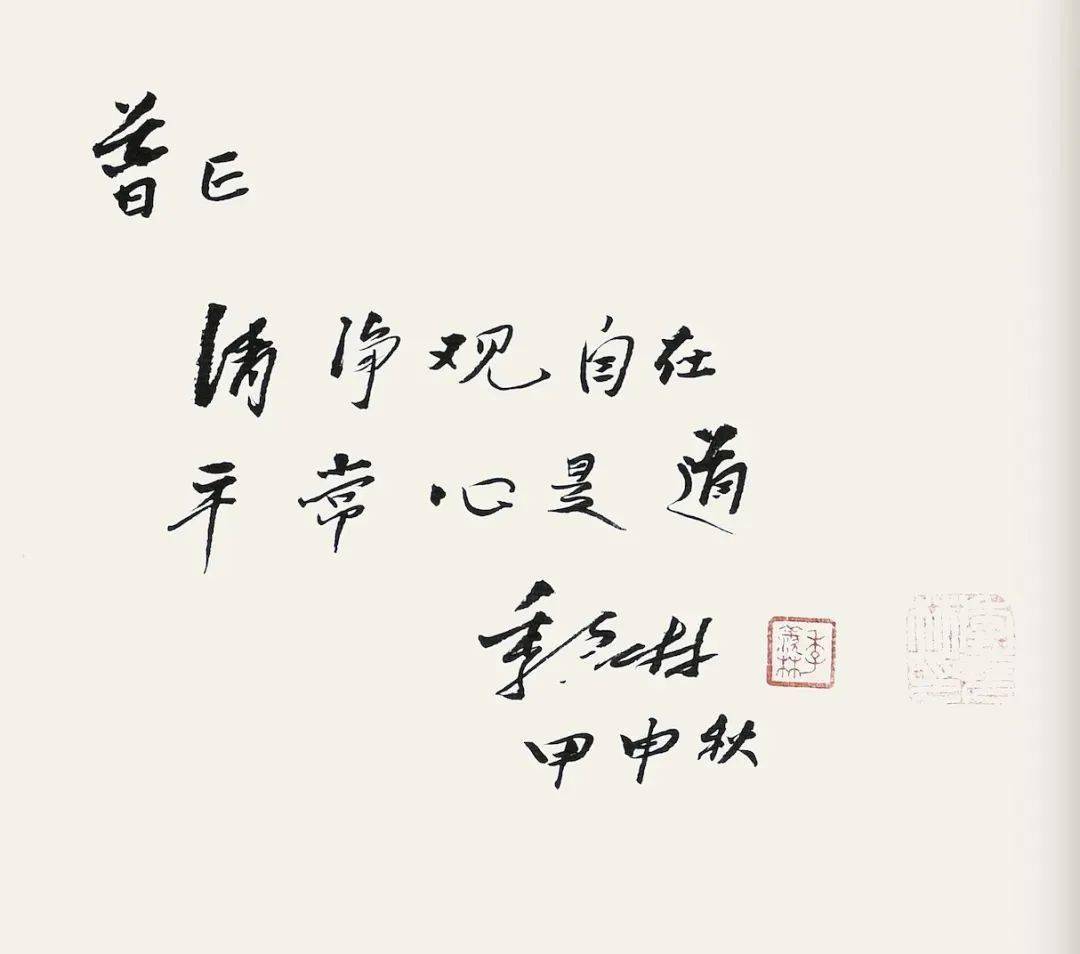 普正
清净观自在
平常心是道
季羡林
季羡林
甲申秋